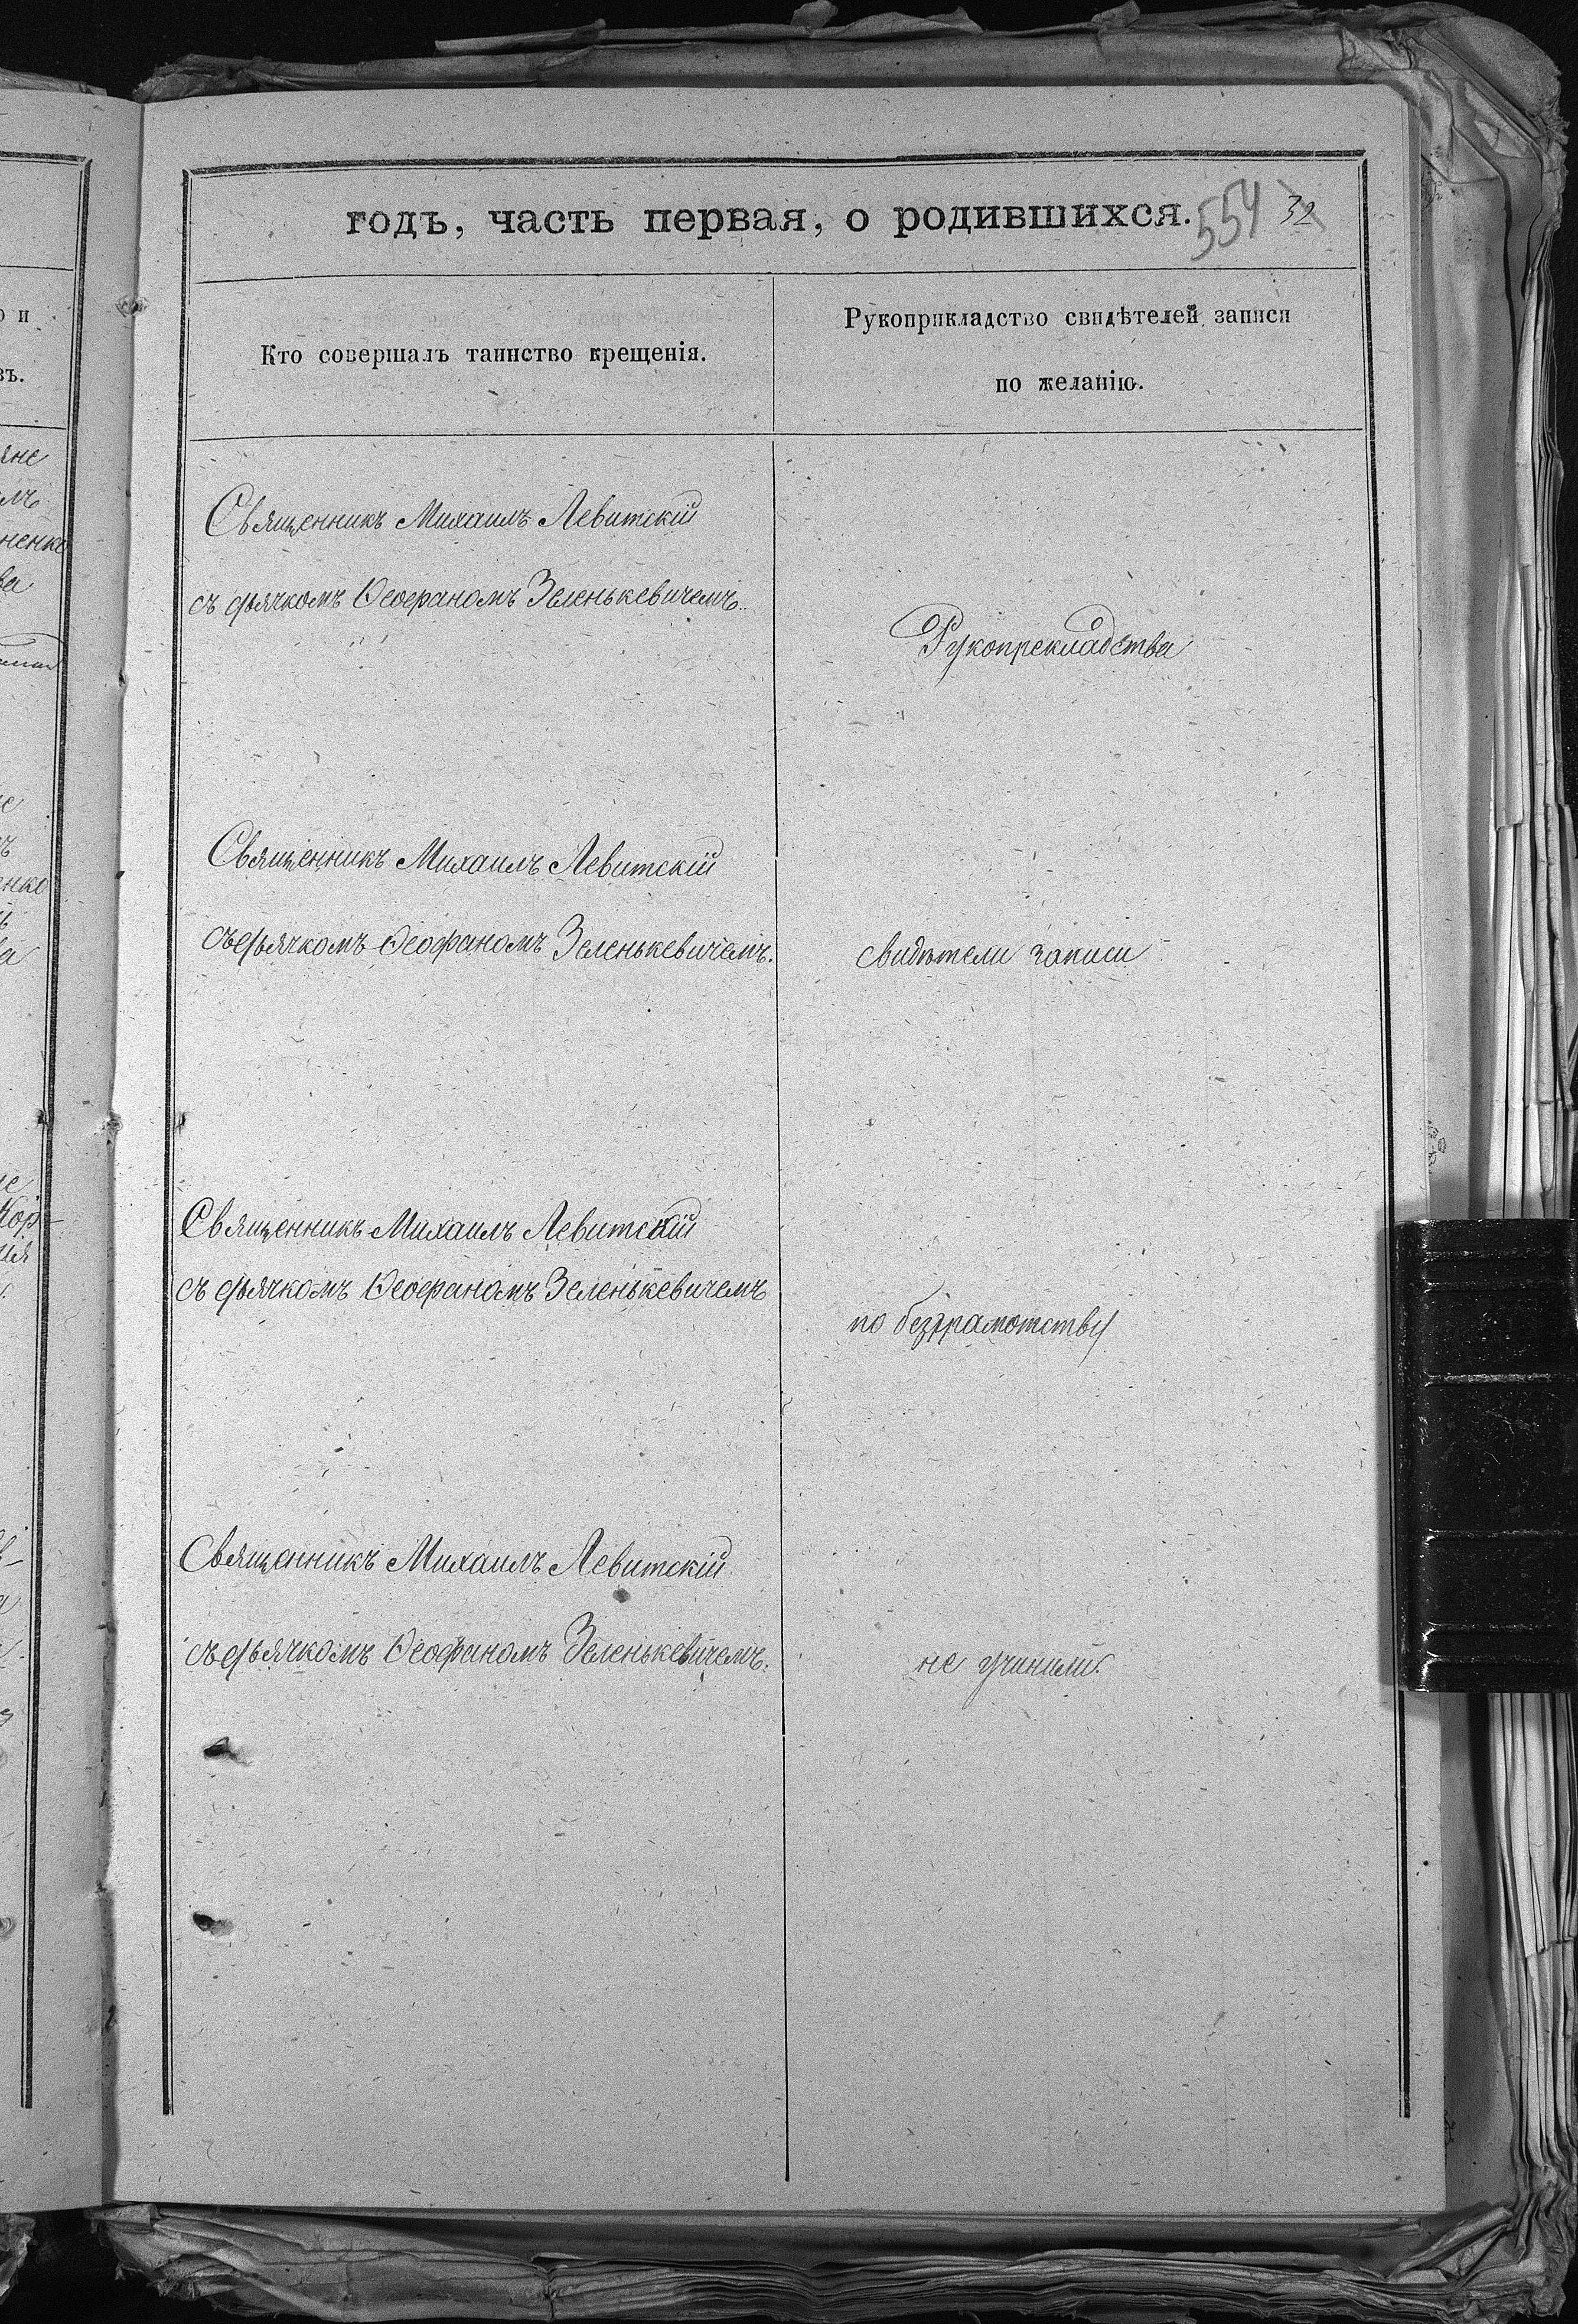 годъ, часть первая, о родившихся. 554 32
Кто совершалъ таинство крещенія.
Рукоприкладство свидѣтелей записи
по желанію.
Священникъ Михаилъ Левитскій
съ дьячкомъ Ѳеофаномъ Зеленькевичемъ.
Рукопрекладства
Священникъ Михаилъ Левитскій
съ дьячкомъ Ѳеофаномъ Зеленькевичемъ.
свидѣтели записи
Священникъ Михаилъ Левитскій
съ дьячкомъ Ѳеофаномъ Зеленькевичемъ
по безграмотству
Священникъ Михаилъ Левитскій
съ дьячкомъ Ѳеофаномъ Зеленькевичемъ.
не учинили.